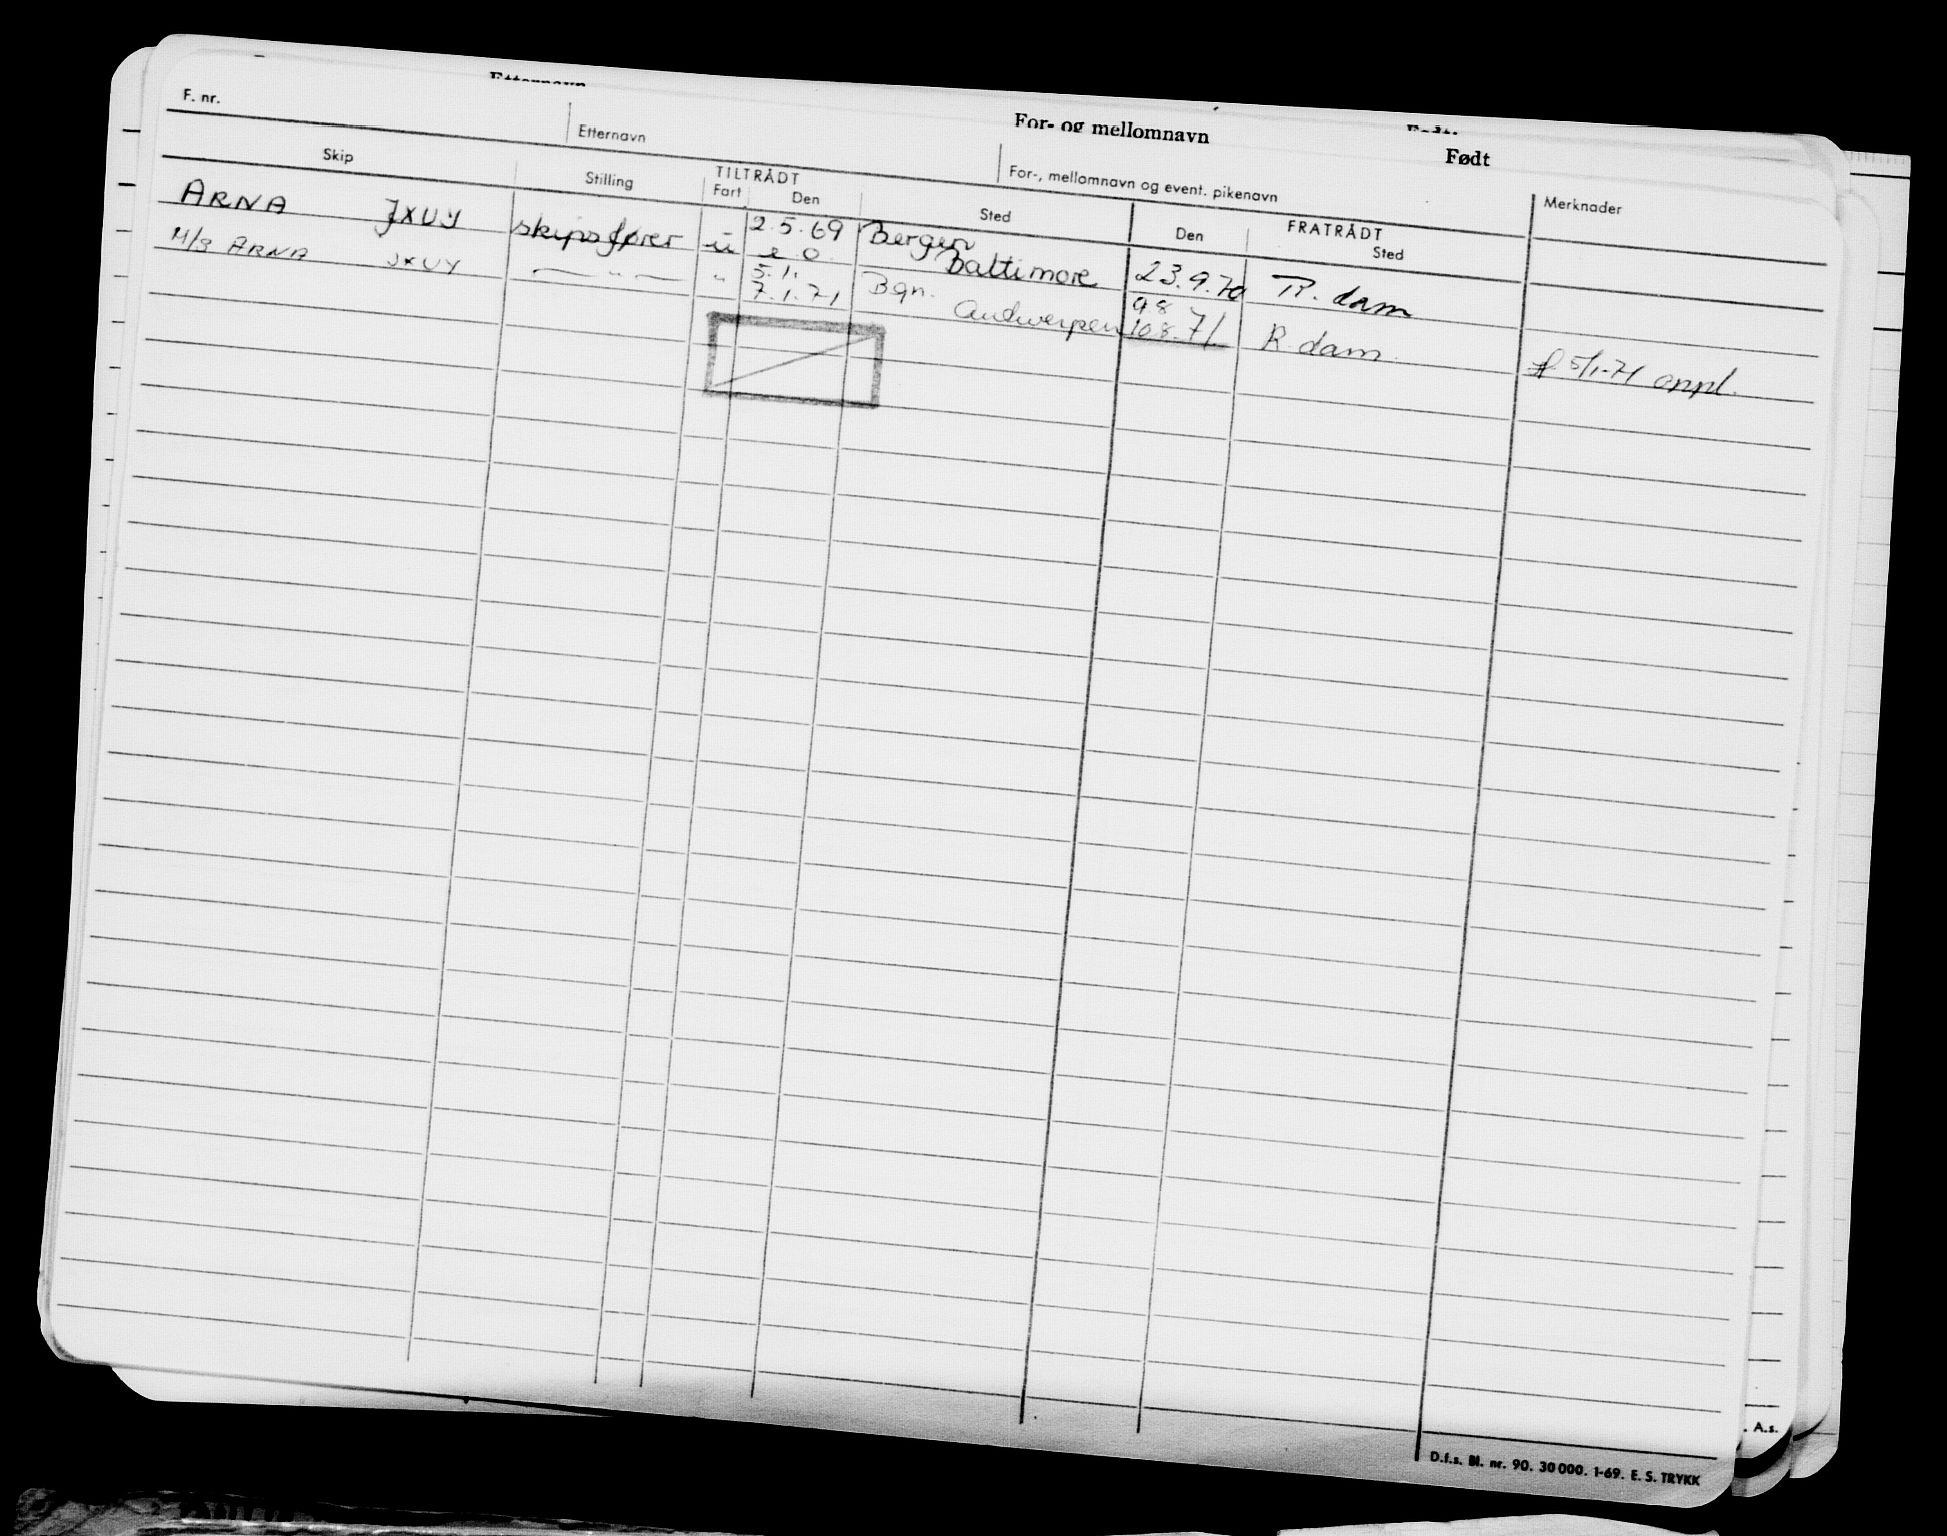 For- og mellomnavn
Født
F. nr.
Etternavn
For-, mellomnavn og event. pikenavn
Skip
Stilling
TILTRÅDT
Fart
Den
Sted
FRATRÅDT
Den
Sted
Merknader
ARNA JXUY skipsfører u 2.5.69 Bergen
Baltimore 23.9.70 R.dam
M/S ARNA JXUY — " — " 5.1. Bgn. 9.8
7.1.71 Antwerpen 10.8.71 R.dam
5/1-71
D.f.s. Bl. nr. 90. 30 000. 1-69. E. S. TRYKK
A.s.